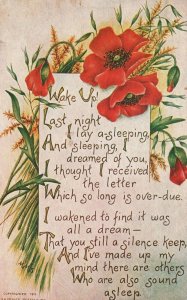 Wake Up!
Last night
I lay a-sleeping,
And sleeping, I
dreamed of you,
I thought I received
the letter
Which so long is over-due.
I wakened to find it was
all a dream—
That you still a silence keep,
And I've made up my
mind there are others
Who are also sound
asleep.
COPYRIGHTED